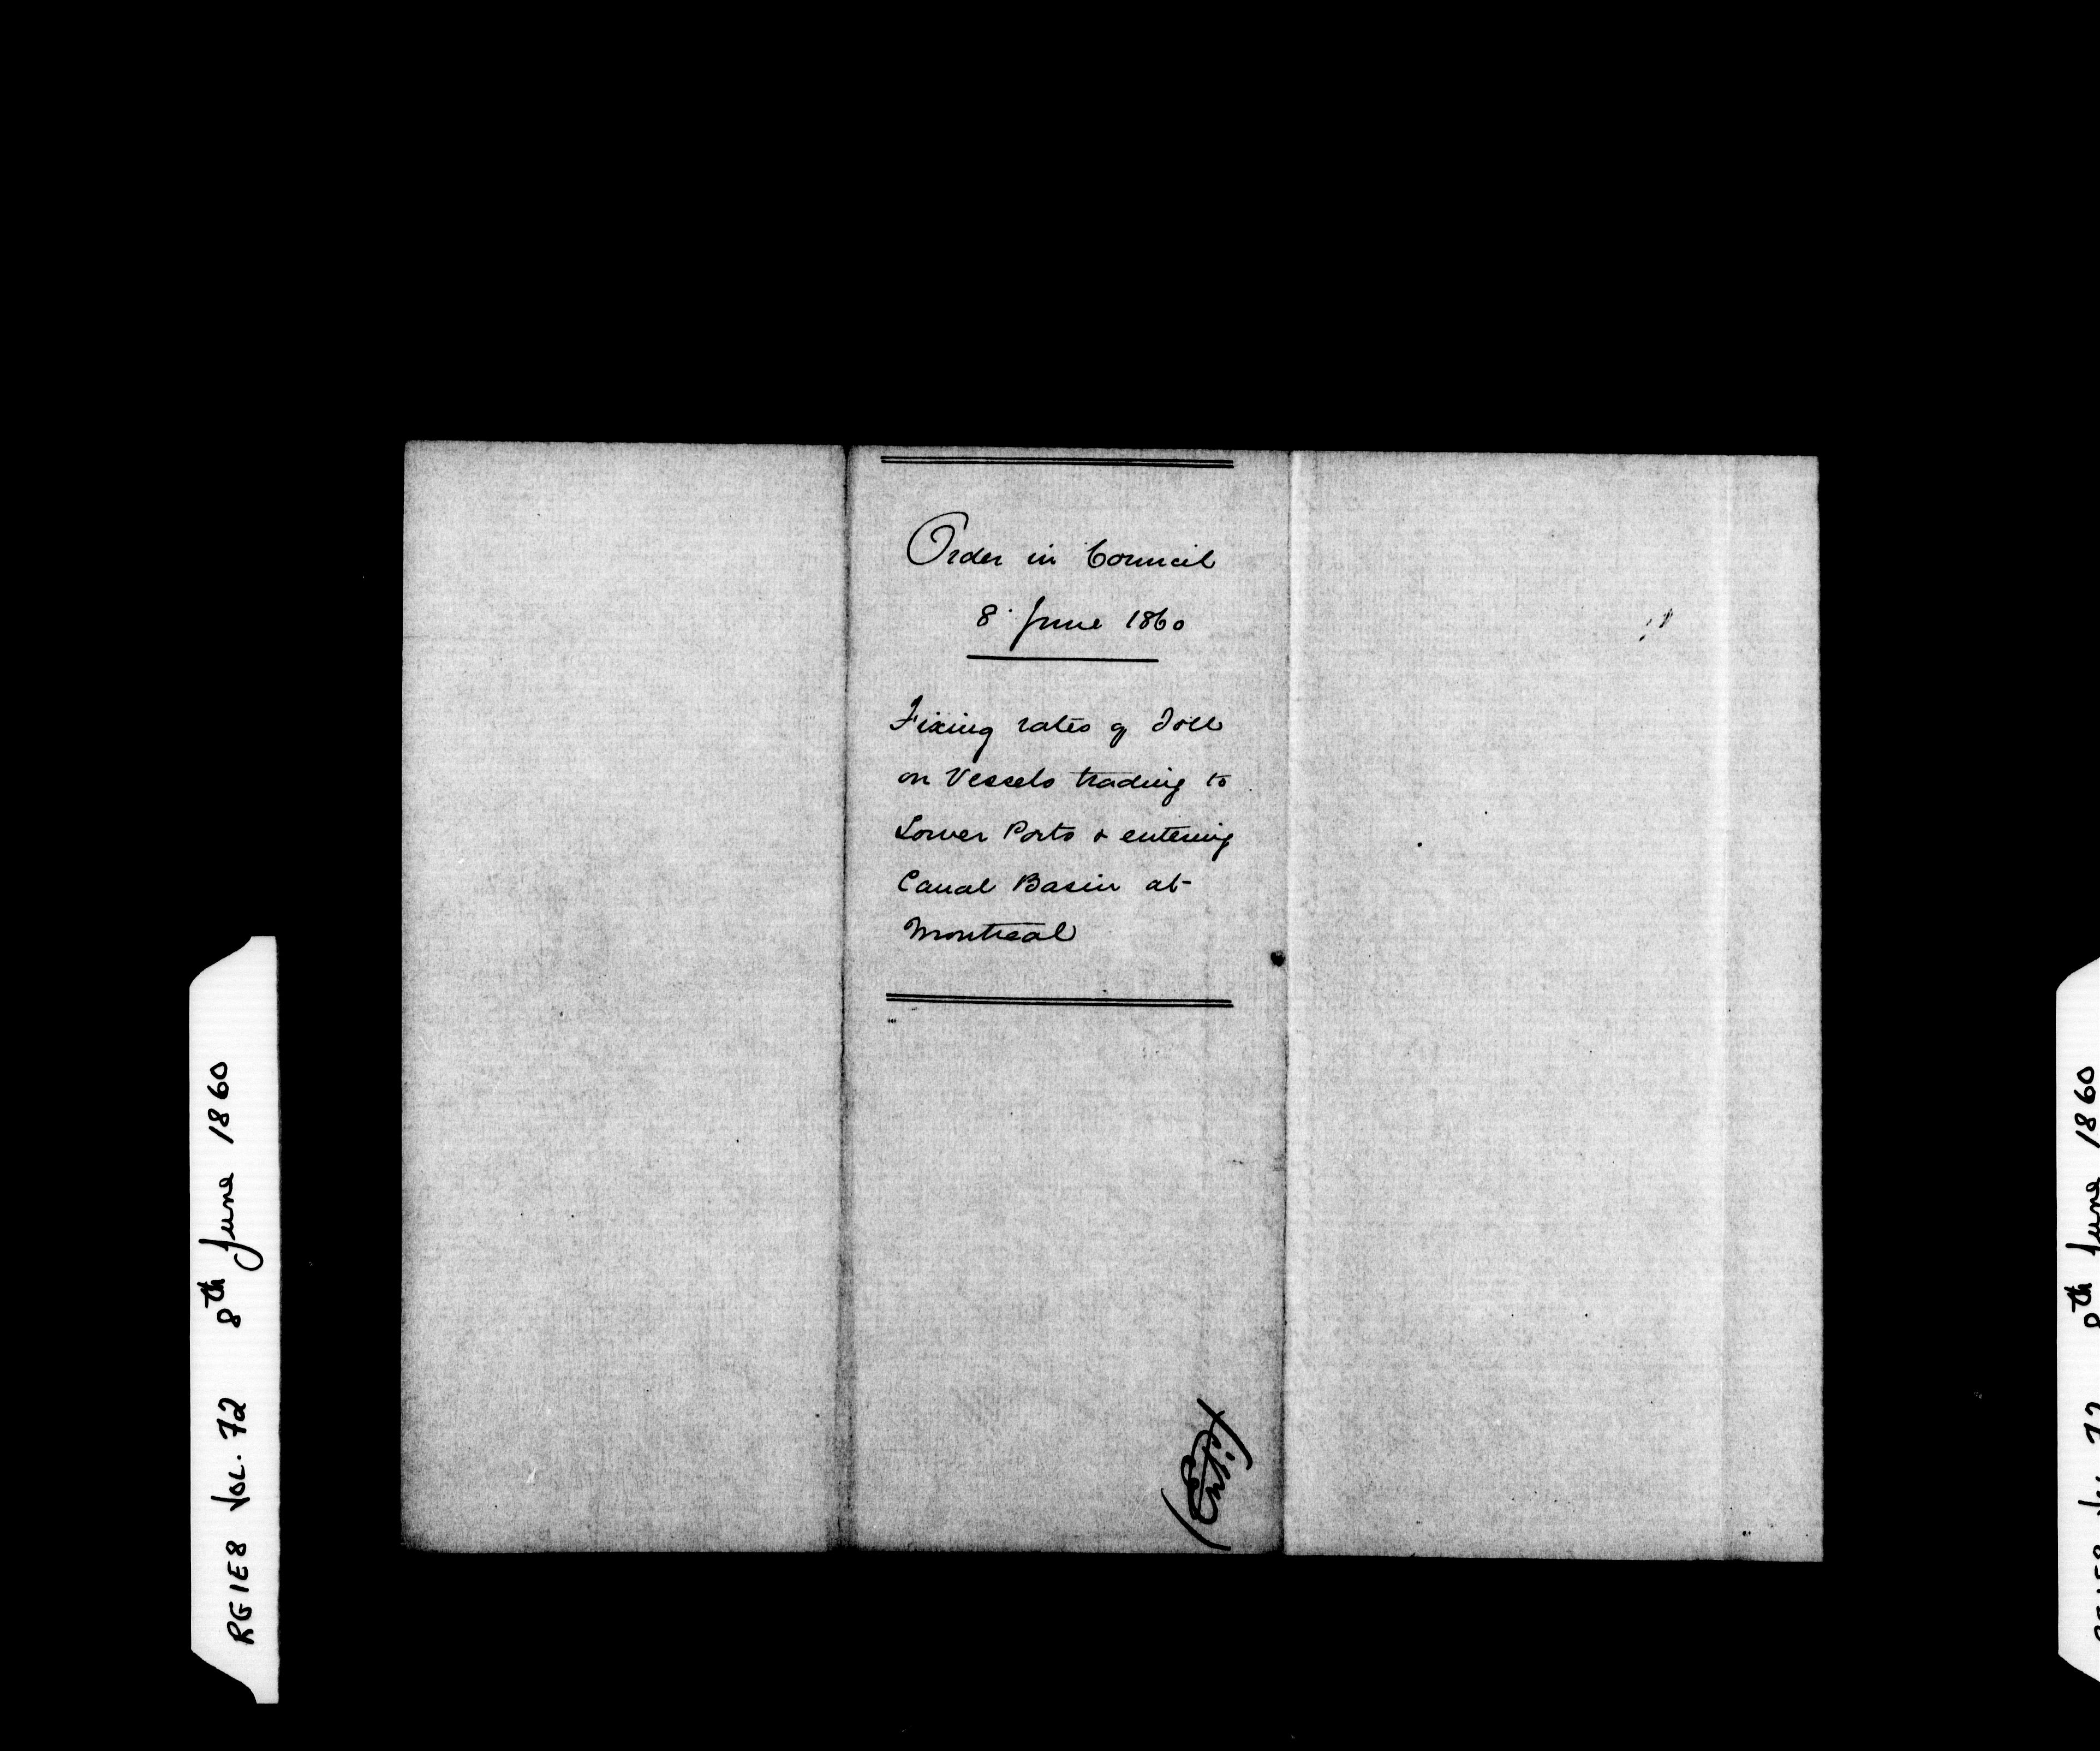 Order in Council
8 June 1860
Fixing rates of Toll
on Vessels trading to
Lower Ports & entering
Canal Basin at
Montreal
(Entd)
RG1E8 VOL. 72 8th June 1860
8th June 1860